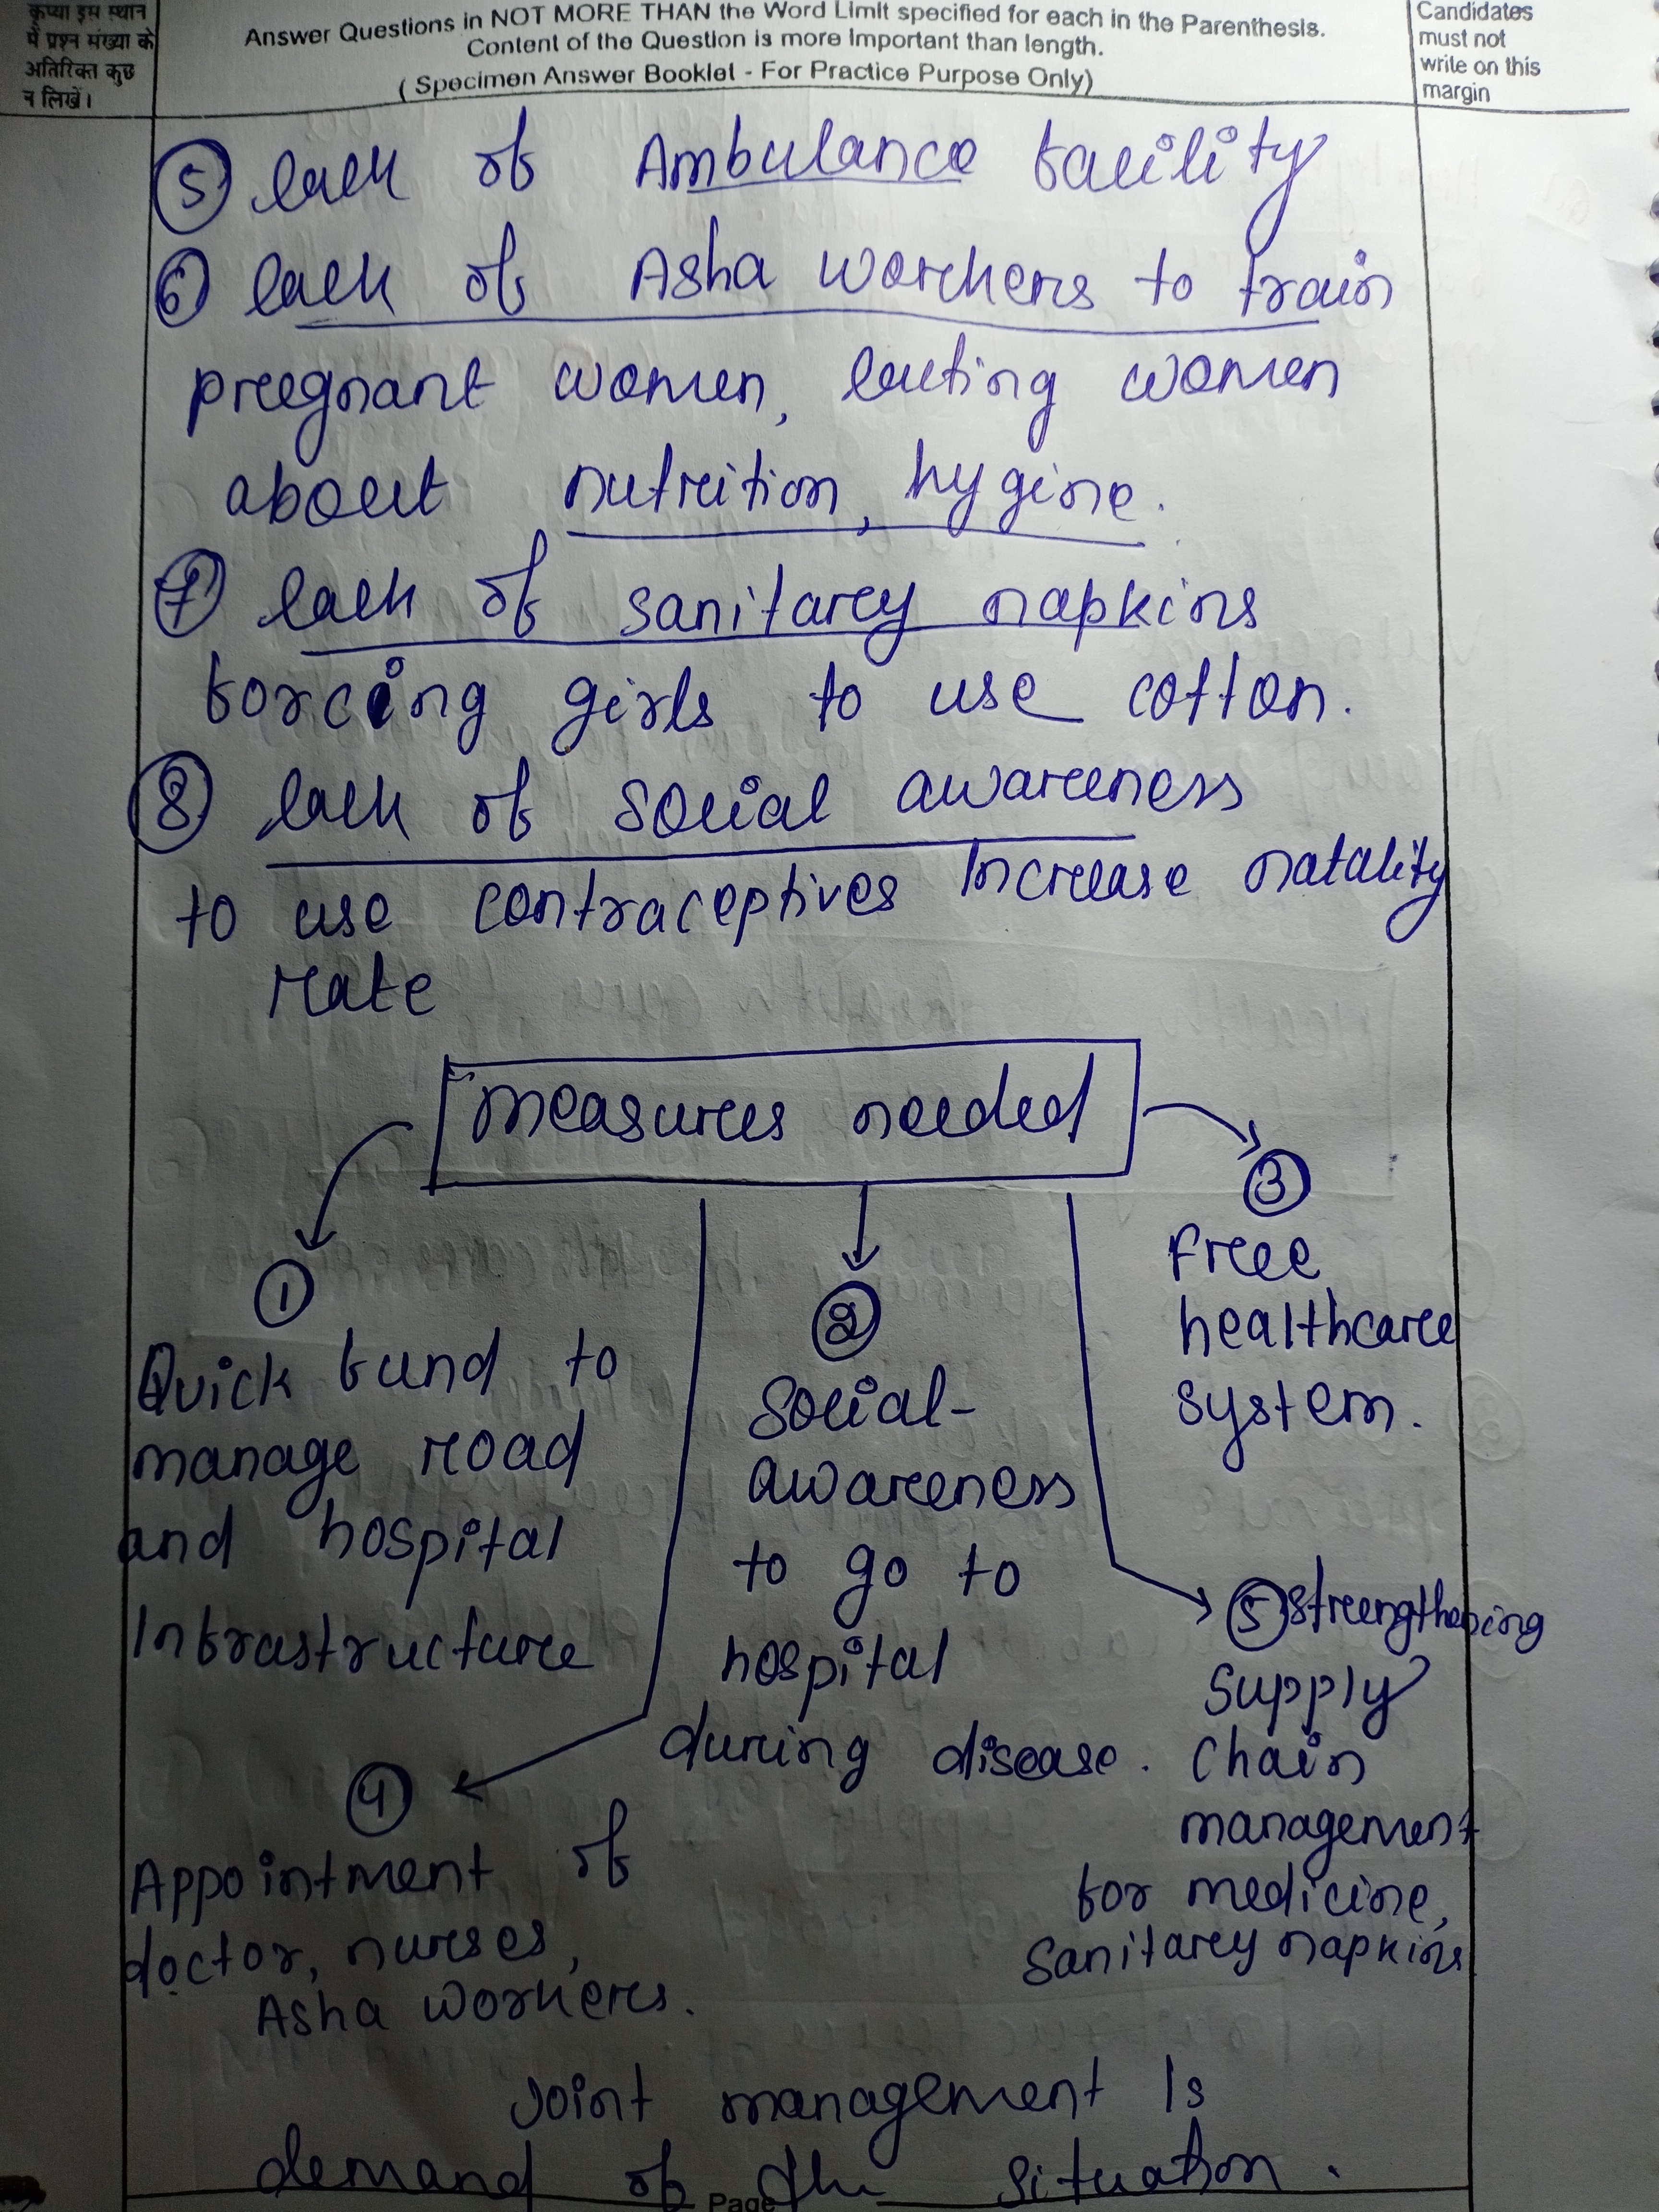 कृप्या इस स्थान
में प्रश्न संख्या के
अतिरिक्त कुछ
न लिखें।
Answer Questions in NOT MORE THAN the Word Limit specified for each in the Parenthesis.
Content of the Question is more Important than length.
( Specimen Answer Booklet - For Practice Purpose Only)
Candidates
must not
write on this
margin
5 lack of Ambulance facility
6 lack of Asha workers to train
pregnant women, lacting women
about nutrition, hygine.
7 lack of sanitary napkins
forcing girls to use cotton.
8 lack of social awareness
to use contraceptives Increase natality
rate
measures needed
1
Quick fund to
manage road
and hospital
Infrastructure
2
Social-
awareness
to go to
hospital
during disease.
3
Free
healthcare
system.
4
Appointment of
doctor, nurses,
Asha workers.
5 strengthening
supply
chain
management
for medicine,
Sanitary napkins
Joint management Is
demand of the situation.
Page